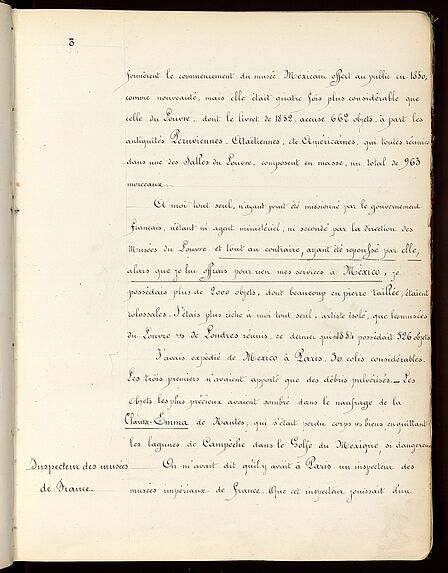 3
formèrent le commencement du musée Mexicain offert au public en 1850,
comme nouveauté, mais elle était quatre fois plus considérable que
celle du Louvre, dont le livret de 1852, accuse 662 objets, à part les
antiquités Péruviennes, Haïtiennes, etc Américaines, qui toutes réunies
dans une des Salles du Louvre, composent en masse, un total de 963
morceaux.
A moi tout seul, n'ayant point été missionné par le gouvernement
Français, n'étant ni agent ministériel, ni secondé par la direction des
Musées du Louvre et tout au contraire, ayant été repoussé par elle,
alors que je lui offrais pour rien mes services à Mexico, je
possédais plus de 2000 objets, dont beaucoup en pierre taillée, étaient
colossales. J'étais plus riche à moi tout seul, artiste isolé, que les musées
du Louvre et de Londres réunis, ce dernier qui 1854 possédait 526 objets
J'avais expédié de Mexico à Paris, 30 colis considérables.
Les trois premiers n'avaient apporté que des débris pulvérisés. _ Les
objets les plus précieux avaient sombré dans le naufrage de la
Emma de Nantes, qui s'était perdu corps et biens en quittant
les lagunes de Campêche dans le Golfe du Mexique, si dangereux
Inspecteur des musées
de France.
On m'avait dit qu'il y avait à Paris, un inspecteur des
musées impériaux de France. Que cet inspecteur jouissait d'un